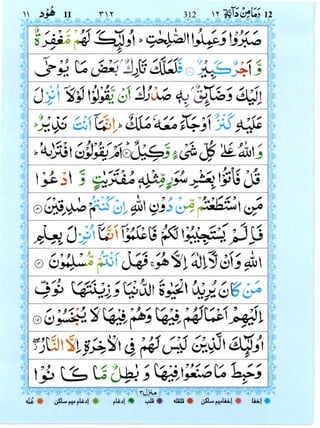 ١١ هُوْد 11 ٣١٢ 312 ١٢ وَمَا مِنْ دَآبَّةٍ 12
صَبَرُوْا وَعَمِلُوا الصّٰلِحٰتِؕ اُولٰٓئِكَ لَهُمْ مَّغْفِرَةٌ
وَّاَجْرٌ كَبِيْرٌ فَلَعَلَّكَ تَارِكٌۢ بَعْضَ مَا يُوْحٰۤى
اِلَيْكَ وَضَآئِقٌۢ بِهٖ صَدْرُكَ اَنْ يَّقُوْلُوْا لَوْلَاۤ اُنْزِلَ
عَلَيْهِ كَنْزٌ اَوْ جَآءَ مَعَهٗ مَلَكٌؕ اِنَّمَاۤ اَنْتَ نَذِيْرٌؕ
وَاللّٰهُ عَلٰى كُلِّ شَيْءٍ وَّكِيْلٌؕ اَمْ يَقُوْلُوْنَ افْتَرٰىهُؕ
قُلْ فَاْتُوْا بِعَشْرِ سُوَرٍ مِّثْلِهٖ مُفْتَرَيٰتٍ وَّادْعُوْا
مَنِ اسْتَطَعْتُمْ مِّنْ دُوْنِ اللّٰهِ اِنْ كُنْتُمْ صٰدِقِيْنَ ١٣
فَاِلَّمْ يَسْتَجِيْبُوْا لَكُمْ فَاعْلَمُوْۤا اَنَّمَاۤ اُنْزِلَ بِعِلْمِ
اللّٰهِ وَاَنْ لَّاۤ اِلٰهَ اِلَّا هُوَۚ فَهَلْ اَنْتُمْ مُّسْلِمُوْنَ ١٤
مَنْ كَانَ يُرِيْدُ الْحَيٰوةَ الدُّنْيَا وَزِيْنَتَهَا نُوَفِّ
اِلَيْهِمْ اَعْمَالَهُمْ فِيْهَا وَهُمْ فِيْهَا لَا يُبْخَسُوْنَ ١٥
اُولٰٓئِكَ الَّذِيْنَ لَيْسَ لَهُمْ فِى الْاٰخِرَةِ اِلَّا النَّارُ
وَحَبِطَ مَا صَنَعُوْا فِيْهَا وَبٰطِلٌ مَّا كَانُوْا
منزل ٣
اخفا اخفا میم ساکن قلقلہ قلب ادغام ادغام میم ساکن غنّہ